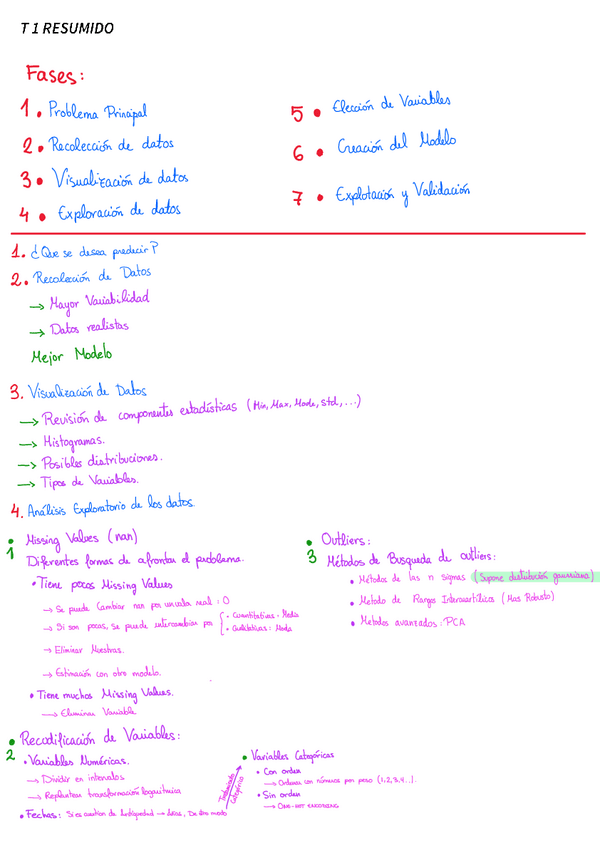 T 1 RESUMIDO
Fases:
1. Problema Principal
2. Recolección de datos
3. Visualización de datos
4. Exploración de datos
5. Elección de Variables
6. Creación del Modelo
7. Explotación y Validación
1. ¿Que se desea predecir?
2. Recolección de Datos
→ Mayor Variabilidad
→ Datos realistas
Mejor Modelo
3. Visualización de Datos
→ Revisión de componentes estadísticas (Min, Max, Moda, std, ...)
→ Histogramas.
→ Posibles distribuciones.
→ Tipos de Variables.
4. Análisis Exploratorio de los datos.
1 • Missing Values (nan)
Diferentes formas de afrontar el problema.
• Tiene pocos Missing Values
→ Se puede Cambiar nan por un valor real: 0
→ Si son pocas, se puede intercambiar por
• Cuantitativas - Media
• Cualitativas: Moda
→ Eliminar Muestras.
→ Estimación con otro modelo.
• Tiene muchos Missing Values.
→ Eliminar Variable
2 • Recodificación de Variables:
• Variables Numéricas.
→ Dividir en intervalos
→ Replantear transformación logarítmica
• Fechas: Si es cuestion de Antigüedad → Años, De otro modo
Tratamiento Categórico
• Variables Categóricas
• Con orden
→ Ordenar con números por peso (1,2,3,4...).
• Sin orden
→ ONE-HOT ENCODING
3 • Outliers:
Métodos de Busqueda de outliers:
• Métodos de las n sigmas (Supone distribución gaussiana)
• Metodo de Rangos Intercuartílicos (Mas Robusto)
• Metodos avanzados: PCA